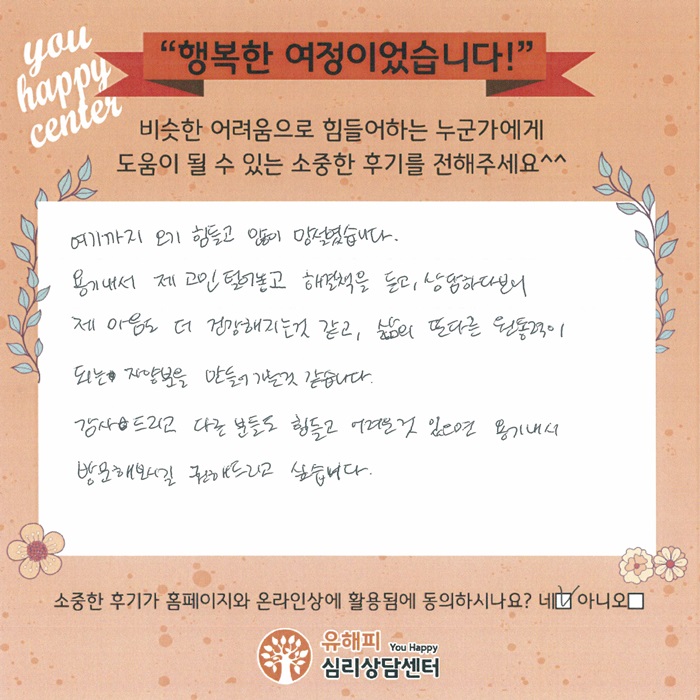 you
happy
center
“행복한 여정이었습니다!”
비슷한 어려움으로 힘들어하는 누군가에게
도움이 될 수 있는 소중한 후기를 전해주세요^^
여기까지 오기 힘들고 많이 망설였습니다.
용기내서 제 고민 털어놓고 해결책을 듣고, 상담하다보니
제 마음도 더 건강해지는것 같고, 삶의 또다른 원동력이
되는 자양분을 만들어가는것 같습니다.
감사드리고 다른 분들도 힘들고 어려운것 있으면 용기내서
방문해보시길 권해드리고 싶습니다.
소중한 후기가 홈페이지와 온라인상에 활용됨에 동의하시나요? 네☑ 아니오☐
유해피 You Happy
심리상담센터